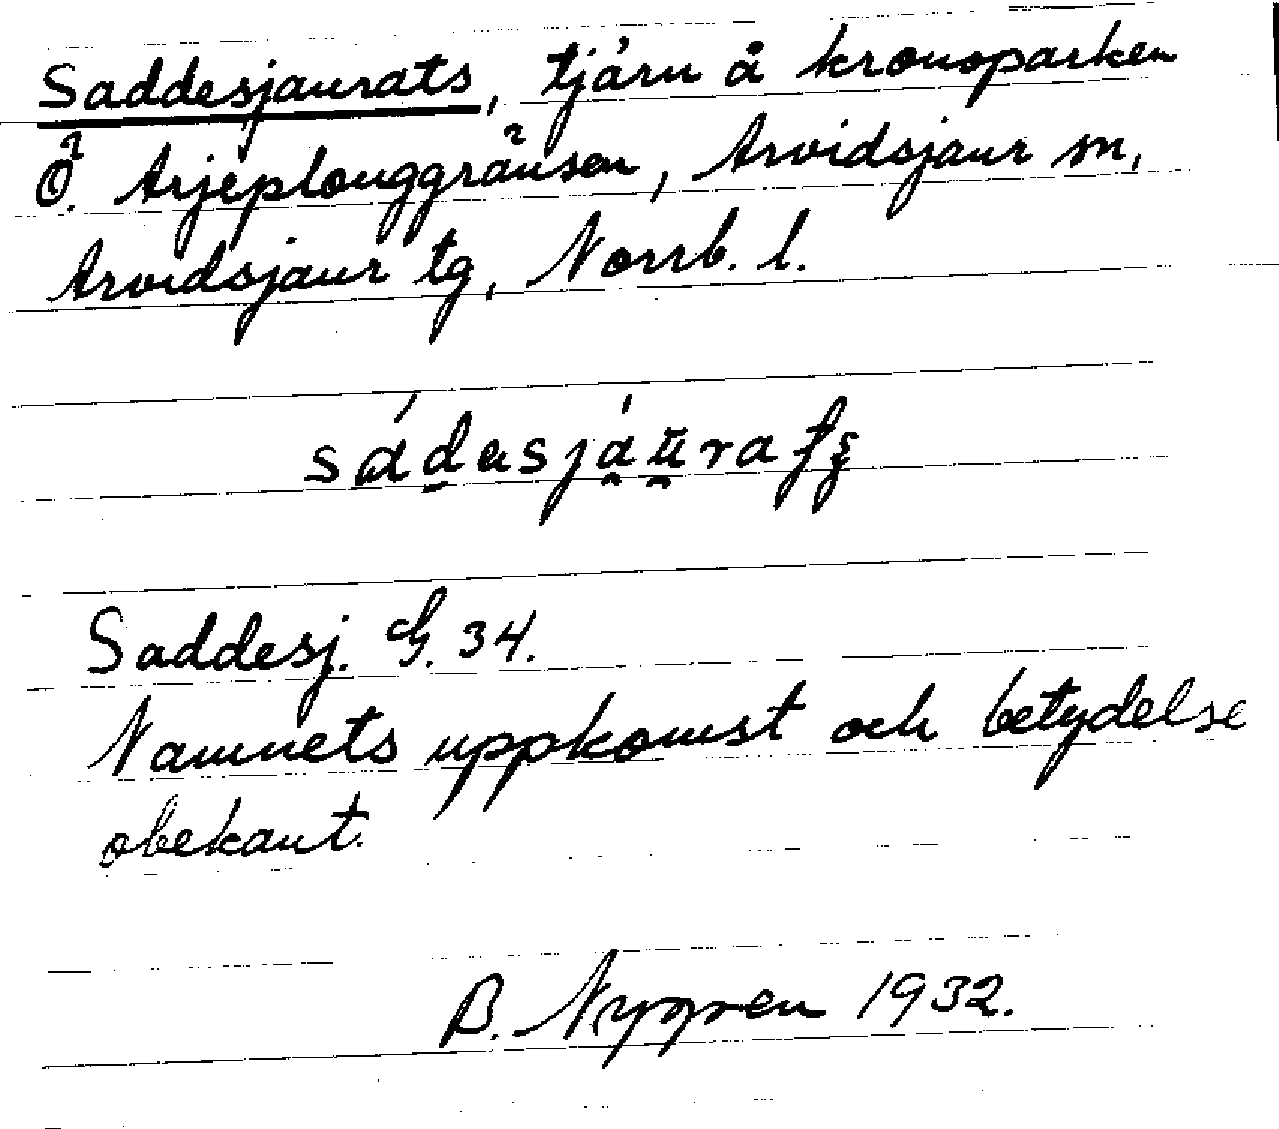 Saddesjaurats, tjärn å kronoparken
Ö. Arjeplouggränsen, Arvidsjaur sn,
Arvidsjaur tg, Norrb. l.
sádasjáu̯rats
Saddesj. G. 34.
Namnets uppkomst och betydelse
obekant.
B. Nygren 1932.